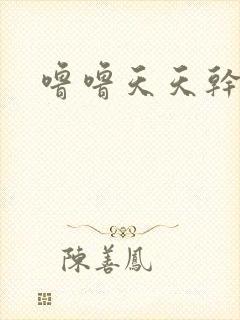 噜噜天天幹
陳善鳳